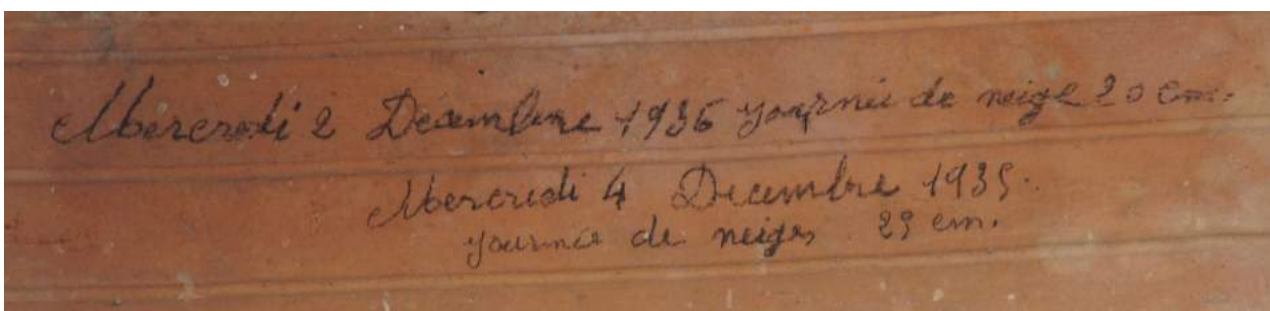 Mercredi 2 Décembre 1936 journée de neige 20 cm.
Mercredi 4 Decembre 1935.
journée de neige, 25 cm.